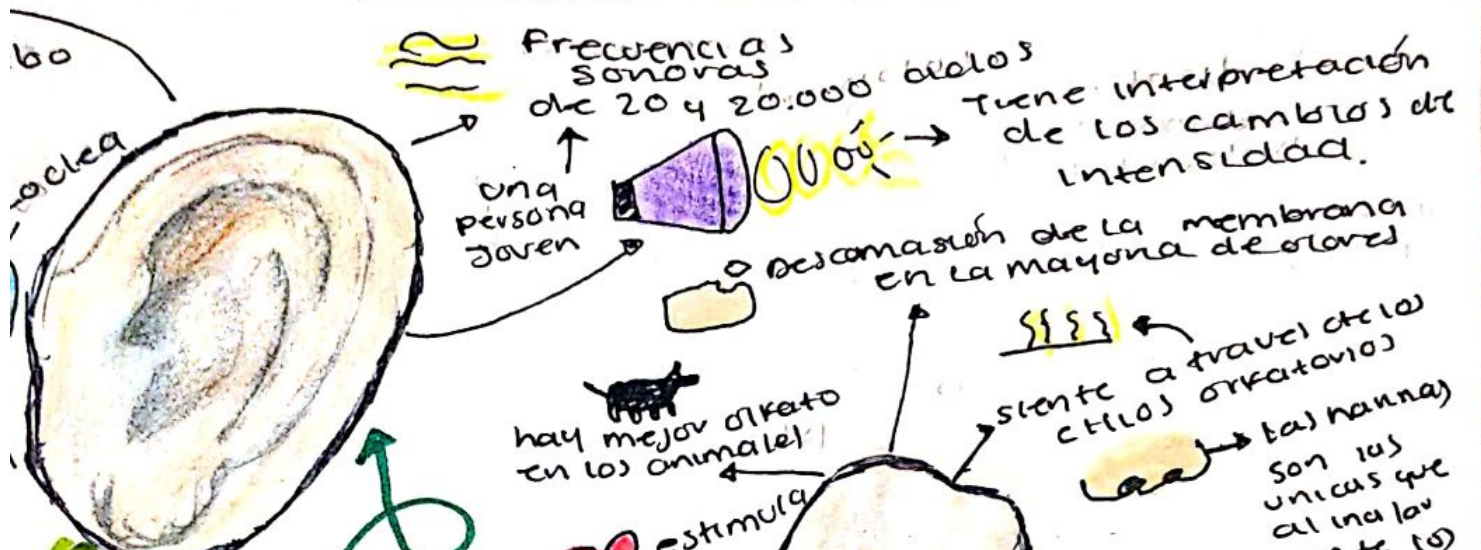 bo
oclea
Frecuencias
sonoras
de 20 y 20.000 ciclos
una
persona
Joven
Tiene interpretación
de los cambios de
intensidad.
Descamasión de la membrana
en la mayoria de olores
hay mejor olfato
en los animales
siente a traves de los
cilios orfatorios
las narinas
son las
unicas que
al inalar
los
estimula